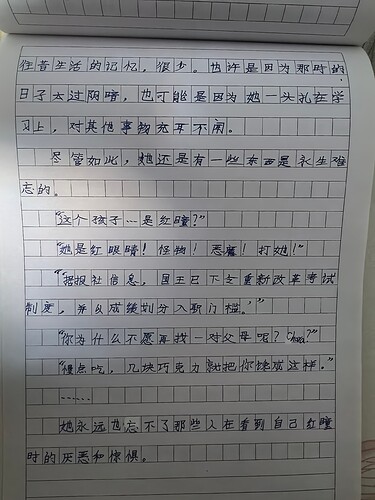 往昔生活的记忆，很少。也许是因为那时的
日子太过阴暗，也可能是因为她一头扎在学
习上，对其他事物充耳不闻。
尽管如此，她还是有一些东西是永生难
忘的。
“这个孩子…是红瞳？”
“她是红眼睛！怪物！恶魔！打她！”
“据报社信息，国王已下令重新改革考试
制度，并以成绩划分入职门槛。”
“你为什么不愿再找一对父母呢？
“慢点吃，几块巧克力就把你馋成这样。”
……
她永远也忘不了那些人在看到自己红瞳
时的厌恶和惊惧。